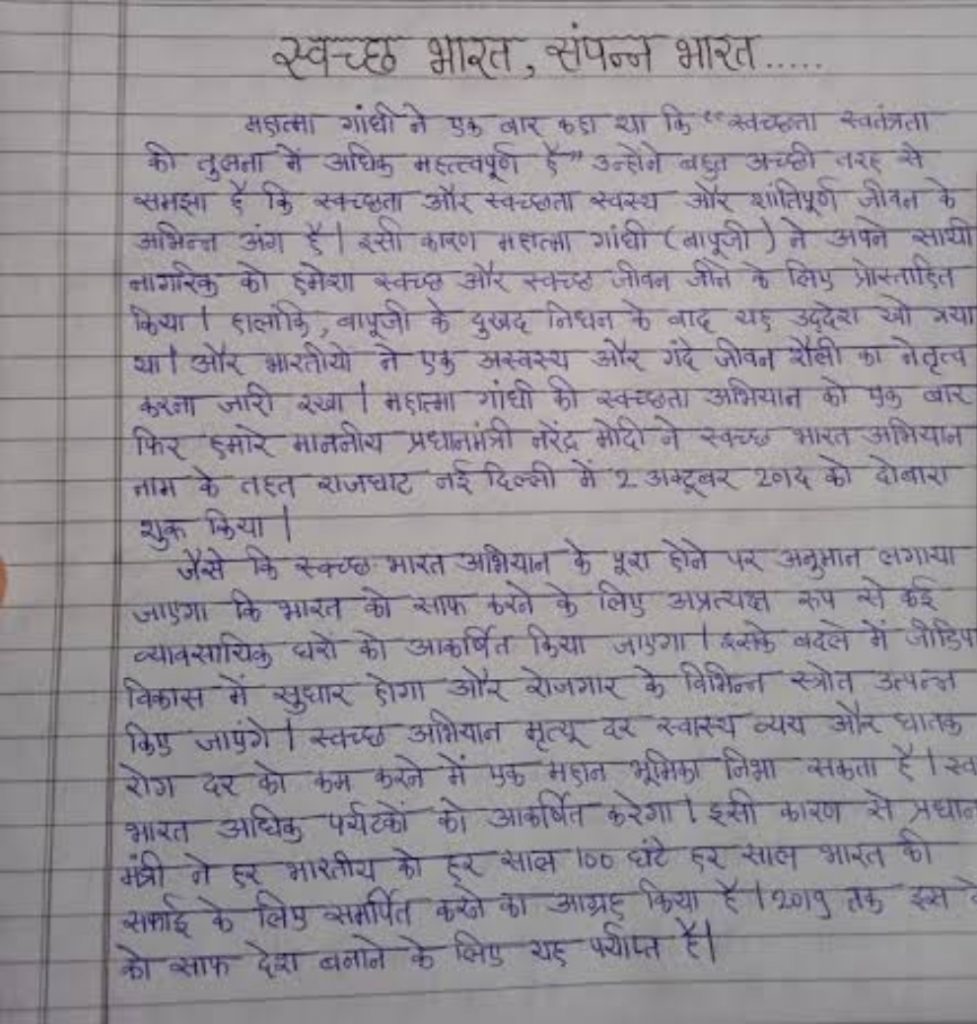 स्वच्छ भारत, संपन्न भारत.....
महात्मा गांधी ने एक बार कहा था कि "स्वच्छता स्वतंत्रता
की तुलना में अधिक महत्त्वपूर्ण है" उन्होंने बहुत अच्छी तरह से
समझा है कि स्वच्छता और स्वच्छता स्वस्थ और शांतिपूर्ण जीवन के
अभिन्न अंग है। इसी कारण महात्मा गांधी (बापूजी) ने अपने साथी
नागरिक को हमेशा स्वच्छ और स्वच्छ जीवन जीने के लिए प्रोत्साहित
किया। हालांकि, बापूजी के दुखद निधन के बाद यह उद्देश खो गया
था। और भारतीयों ने एक अस्वस्थ और गंदे जीवन शैली का नेतृत्व
करना जारी रखा। महात्मा गांधी की स्वच्छता अभियान को एक बार
फिर हमारे माननीय प्रधानमंत्री नरेंद्र मोदी ने स्वच्छ भारत अभियान
नाम के तहत राजघाट नई दिल्ली में 2 अक्टूबर को दोबारा
शुरू किया।
जैसे कि स्वच्छ भारत अभियान के पूरा होने पर अनुमान लगाया
जाएगा कि भारत को साफ करने के लिए अप्रत्यक्ष रुप से कई
व्यावसायिक घरो को आकर्षित किया जाएगा। इसके बदले में जीडिप
विकास में सुधार होगा और रोजगार के विभिन्न स्त्रोत उत्पन्न
किए जाएंगे। स्वच्छ अभियान मृत्यू दर स्वास्थ व्यय और घातक
रोग दर को कम करने में एक महान भूमिका निभा सकता है।
भारत अधिक पर्यटकों को आकर्षित करेगा। इसी कारण से प्रधान
मंत्री ने हर भारतीय को हर साल 100 घंटे हर साल भारत की
सफाई के लिए समर्पित करने का आग्रह किया है। 2019 तक इस
को साफ देश बनाने के लिए यह पर्याप्त है।